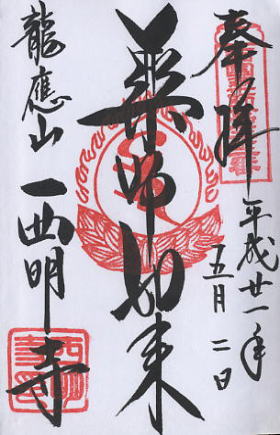 奉拝
平成廿一年
五月二日
薬師如来
龍應山
西明寺